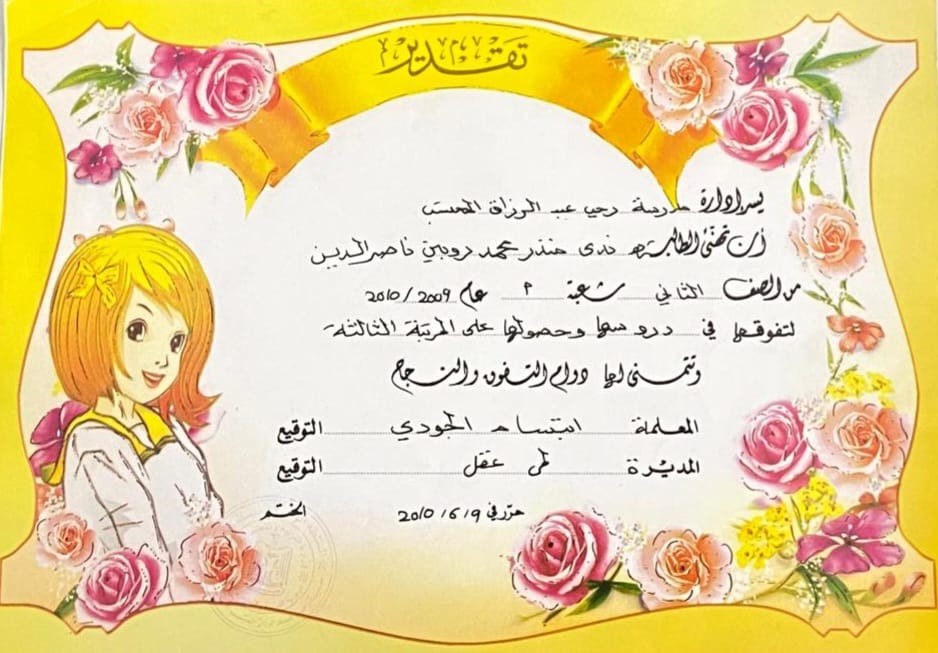 تقدير
يسر إدارة مدرسة رحب عبد الرزاق المحتسب
أن تهنئ الطالبة ندى منذر محمد روبين ناصر الدين
من الصف الثاني شعبة ٢ عام 2009 / 2010
لتفوقها في دروسها وحصولها على المرتبة الثالثة
وتتمنى لها دوام التفوق والنجاح
المعلمة ابتسام الجودي التوقيع
المديرة عقل التوقيع
حرر في 9 / 6 / 2010 الختم